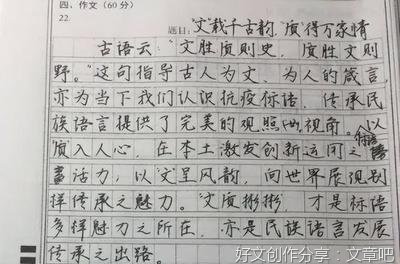 四、作文(60分)
22.
题目:“文”载千古韵,“质”得万家情
古语云:“文胜质则史,质胜文则
野。”这句指导古人为文、为人的箴言,
亦为当下我们认识抗疫标语,传承民
族语言提供了完美的观照两视角。以
“质”入人心,在本土激发创新运河之
标语
活力,以“文”呈风韵,向世界展现别
样传承之魅力。“文质彬彬”,才是标语
多样魅力之所在,亦是民族语言发展
传承之出路。
好文创作分享:文章吧